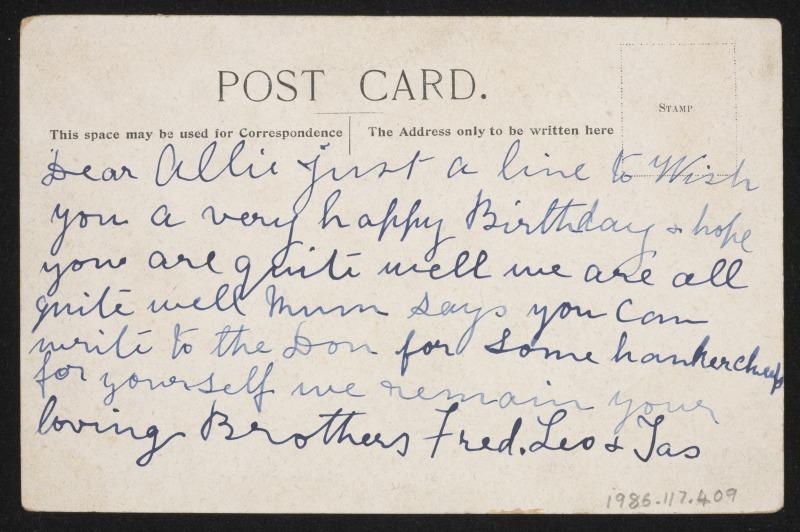 POST CARD.
STAMP
This space may be used for Correspondence
The Address only to be written here
Dear Allie just a line to Wish
you a very happy Birthday & hope
your are quite well we are all
quite well Mum says you can
write to the Don for some hankercheifs
for yourself we remain your
loving Brothers Fred. Leo & Jas
1986.117.409